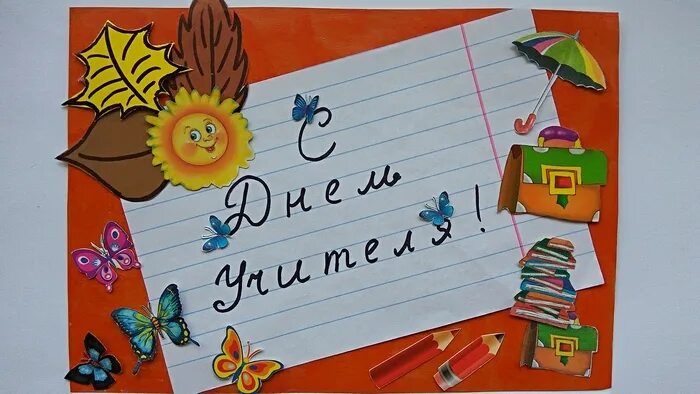 С
Днем
Учителя!